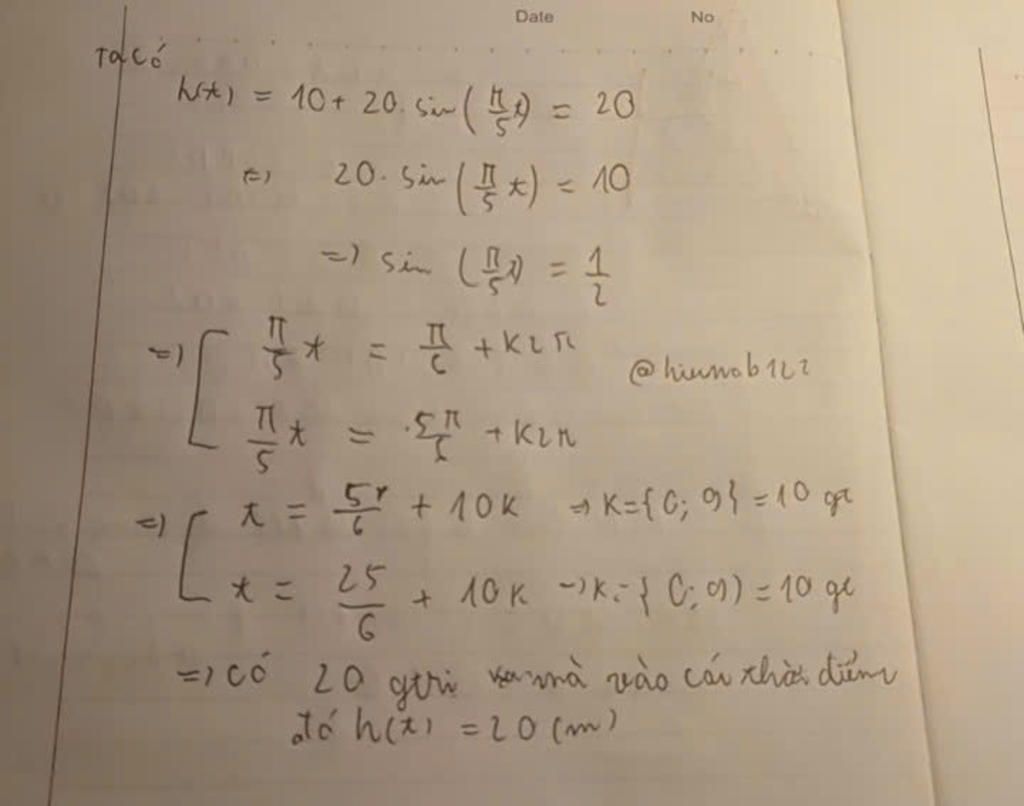 Date No
Ta có
h(t) = 10 + 20. sin(π/5 t) = 20
⇔ 20. sin(π/5 t) = 10
=> sin (π/5 t) = 1/2
=> [ π/5 t = π/6 + k2π
@hiunob122
π/5 t = 5π/6 + k2π
=> [ t = 5/6 + 10k => k={0; 9} = 10 gt
t = 25/6 + 10k -> k = {0; 9) = 10 gt
=> có 20 gtri mà vào các thời điểm
đó h(t) = 20 (m)